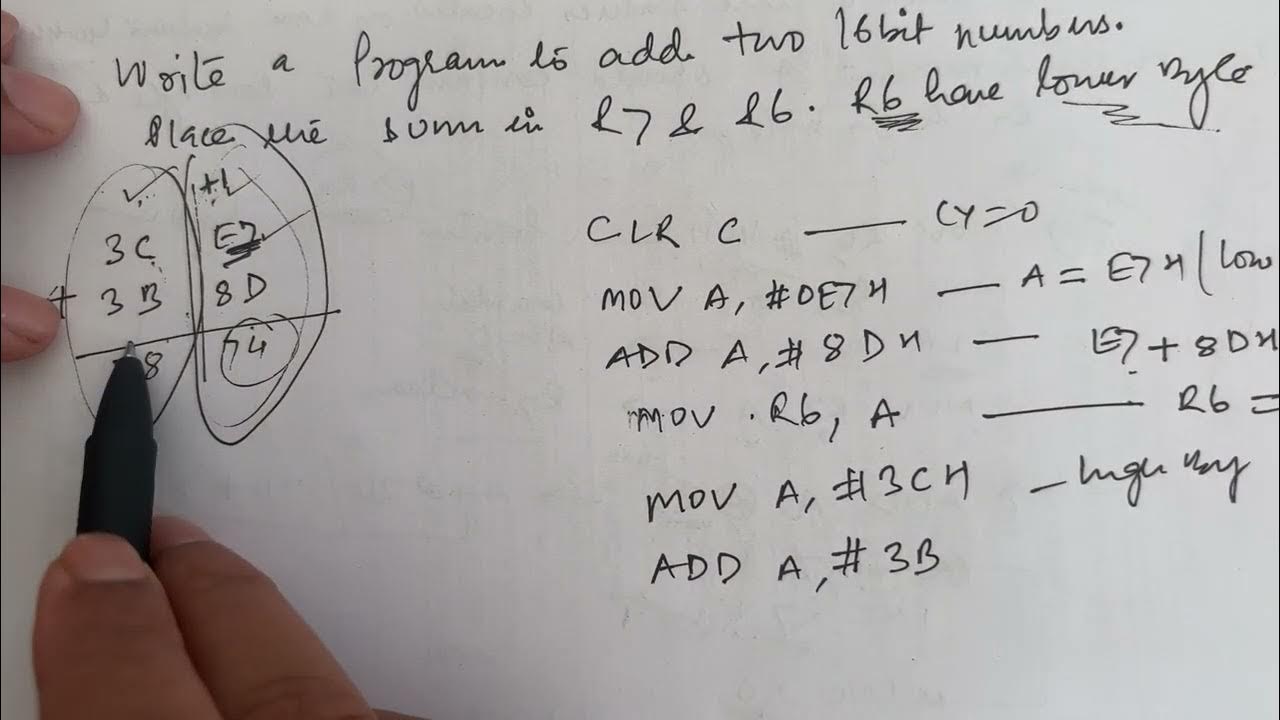 Write a Program to add two 16bit numbers.
Place the sum in R7 & R6. R6 have lower Byte
+1
3C E7
+ 3B 8D
8 74
CLR C — CY=0
MOV A, #0E7H — A = E7H (low
ADD A, #8DH — E7 + 8DH
MOV R6, A — R6 =
MOV A, #3CH — high
ADD A, #3B